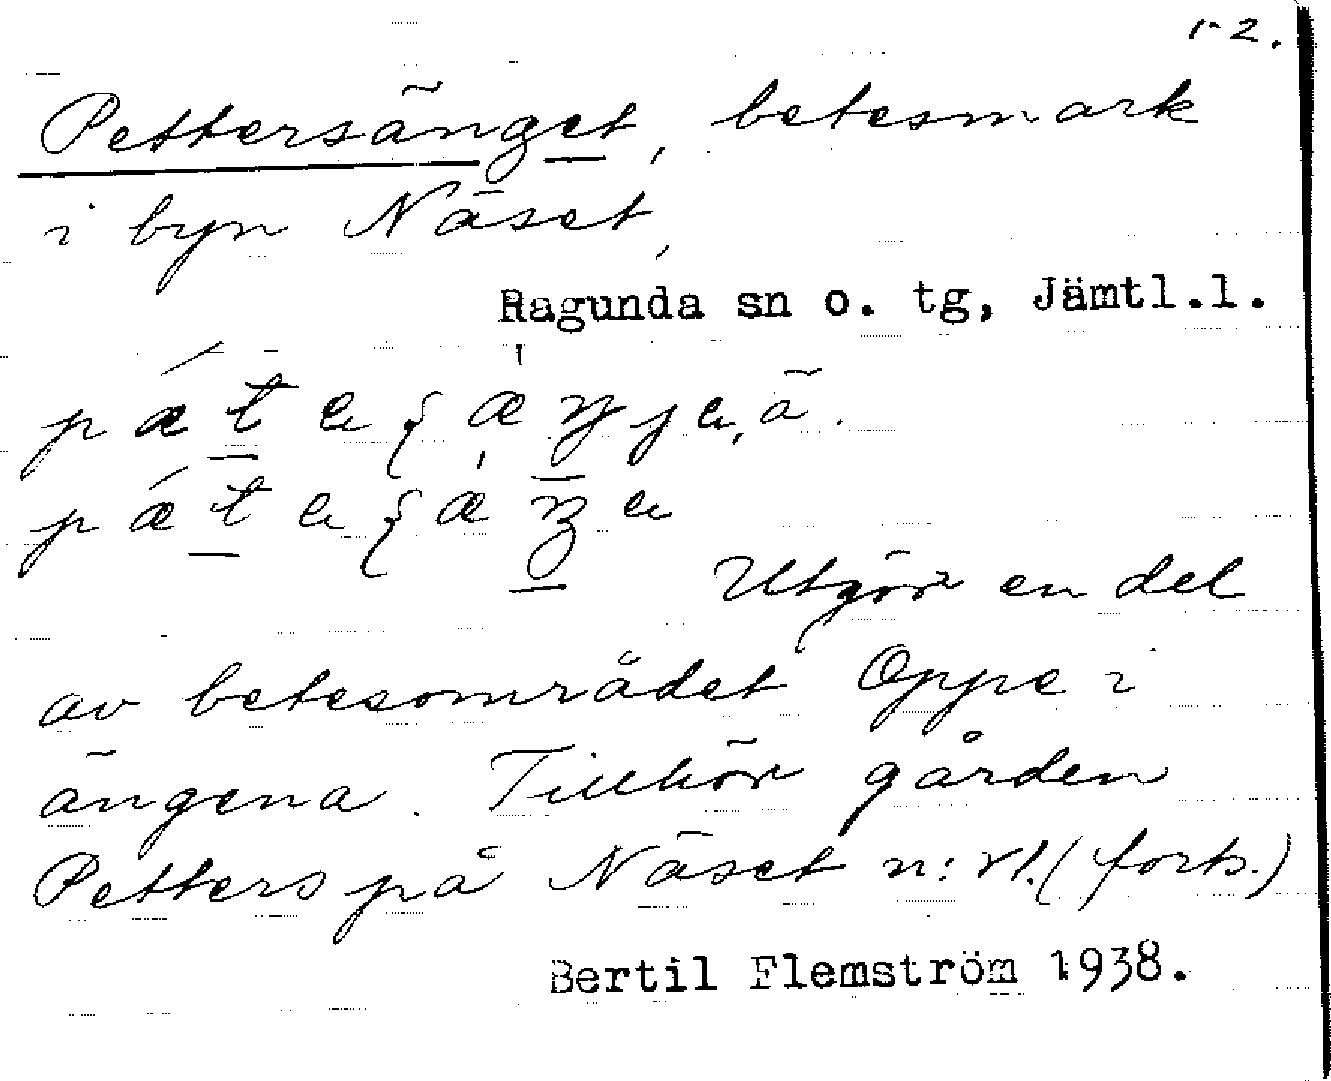 1-2.
Pettersänget, betesmark
i byn Näset,
Ragunda sn o. tg, Jämtl.l.
Utgör en del
av betesområdet Oppe i
ängena. Tillhör gården
Petters på Näset n: (forts.)
Bertil Flemström 1938.